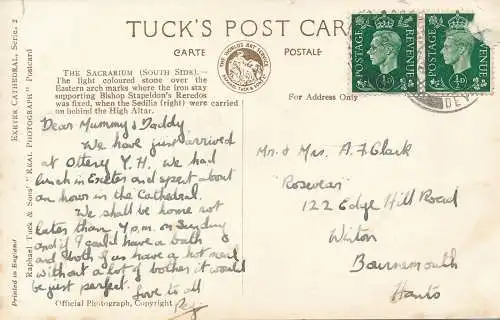 TUCK'S POST CARD
CARTE POSTALE
THE WORLD'S ART SERVICE
RAPHAEL TUCK & SONS LTD
POSTAGE REVENUE
½D
POSTAGE REVENUE
½D
DEV
THE SACRARIUM (SOUTH SIDE)—
The light coloured stone over the
Eastern arch marks where the iron stay
supporting Bishop Stapeldon's Reredos
was fixed, when the Sedilia (right) were carried
on behind the High Altar.
For Address Only
Dear Mummy & Daddy
We have just arrived
at Ottery Y.H. We had
lunch in Exeter and spent about
an hour in the Cathedral.
We shall be home not
later than 7 p.m. on Sunday
and if I could have a bath
and both of us have a hot meal
without a lot of bother it would
be just perfect.
Love to all
Reg.
Mr. & Mrs. A. J. Clark
"Rosevear"
122 Edge Hill Road
Winton
Bournemouth
Hants
Official Photograph, Copyright
Printed in England
Raphael Tuck & Sons' "REAL PHOTOGRAPH" Postcard
EXETER CATHEDRAL, Series 2